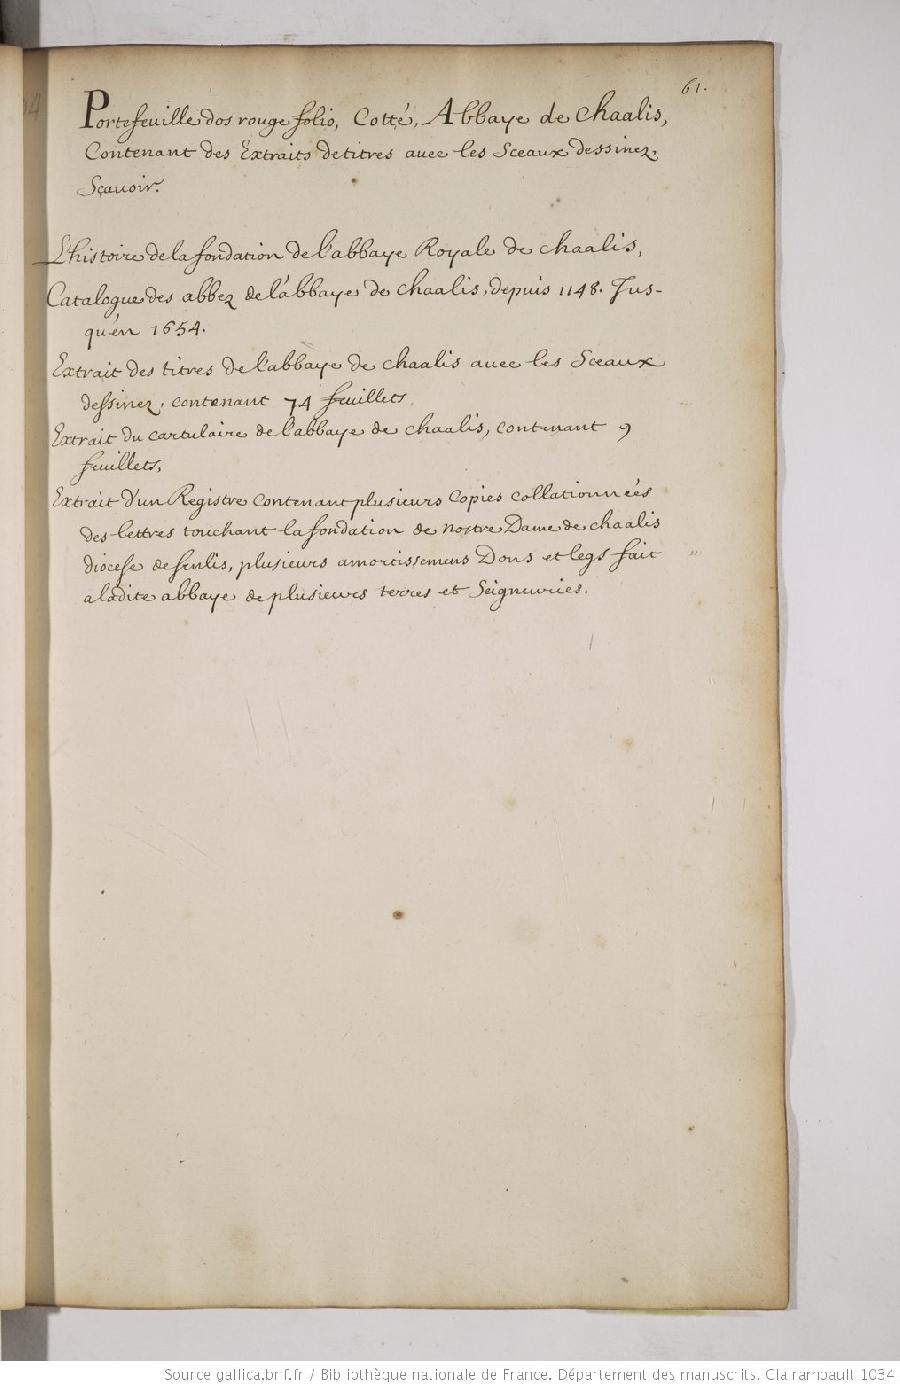 61.
Portefeuille dos rouge folio, Cotté, Abbaye de Chaalis,
Contenant des Extraits de titres avec les Sceaux dessinez,
Sçavoir.
L'histoire de la fondation de l'abbaye Royale de Chaalis,
Catalogue des abbez de l'abbaye de Chaalis, depuis 1148. Jus-
qu'én 1654.
Extrait des titres de l'abbaye de Chaalis avec les Sceaux
dessinez, contenant 74 feuillets.
Extrait du cartulaire de l'abbaye de Chaalis, contenant 9
feuillets,
Extrait d'un Registre contenant plusieurs Copies collationnées
des lettres touchant la fondation de nostre Dame de Chaalis
diocese de senlis, plusieurs amortissemens Dons et legs fait
a ladite abbaye de plusieurs terres et Seigneuries.
Source gallica.bnf.fr / Bibliothèque nationale de France. Département des manuscrits. Clairambault 1034